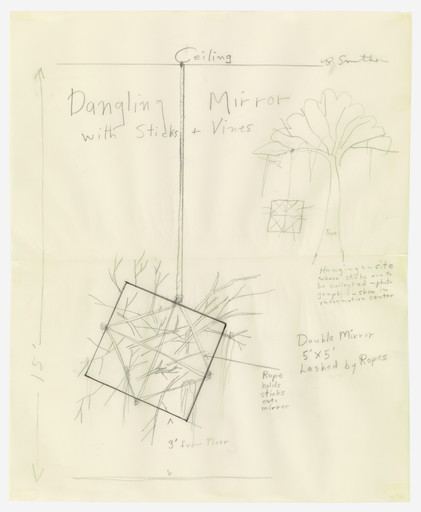 Ceiling
Dangling Mirror
with Sticks + Vines
Tree
Hanging on site
where sticks are to
be collected - photo
graphic - show in
information center
15'
Double Mirror
5' X 5'
Lashed by Ropes
Rope
holds
sticks
over
mirror
3' from Floor